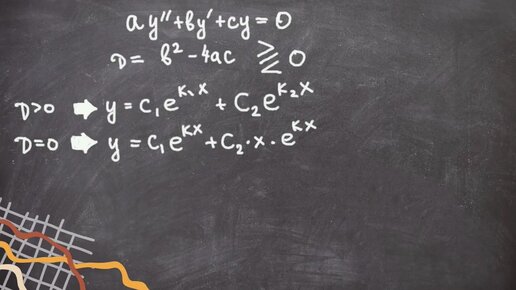 ay″+by′+cy=0
D= b²-4ac ⪌ 0
D>0 ➡ y=C₁e^{K₁x}+C₂e^{K₂x}
D=0 ➡ y=C₁e^{Kx}+C₂·x·e^{Kx}